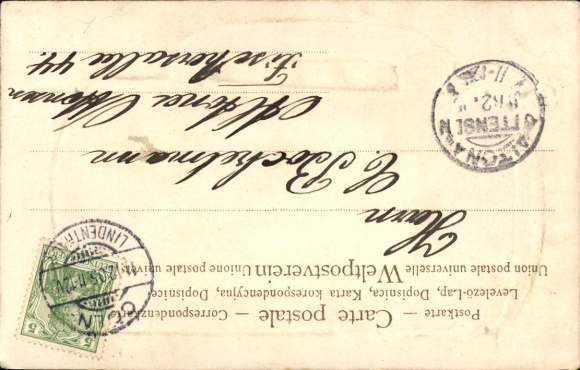 Postkarte — Carte postale — Correspondenzkarte
Levelező-Lap, Dopisnica, Karta korespondencyjna, Dopisnice
Union postale universelle Weltpostverein Unione postale universale
Herrn
C. Bockelmann
Altona Ottensen
Fischersallee 44.
ALTONA
OTTENSEN
CÖLN
LINDENTHAL
5
5